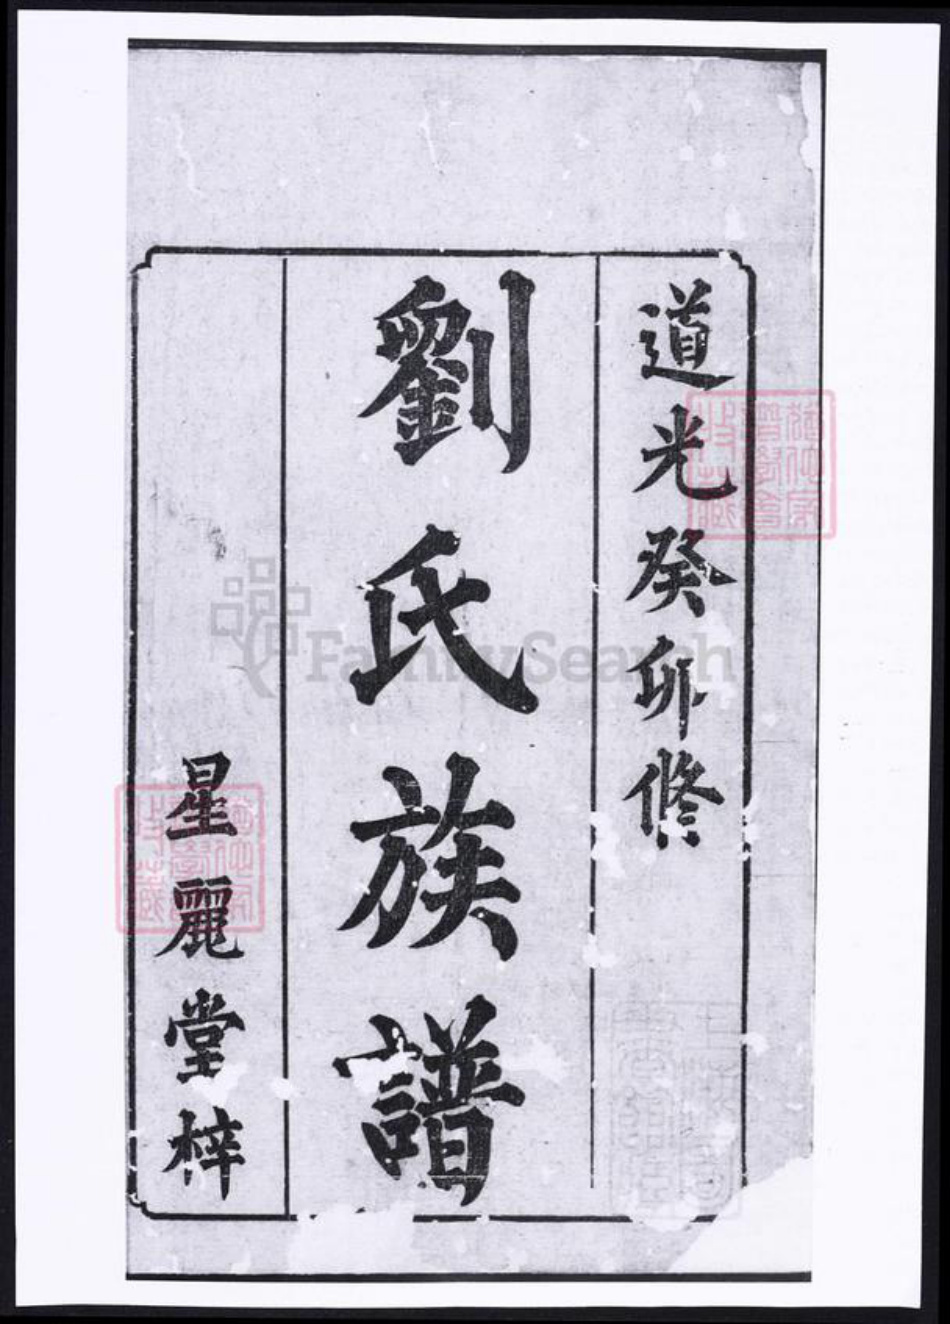 道光癸卯修
劉氏族譜
星麗堂梓
FamilySearch